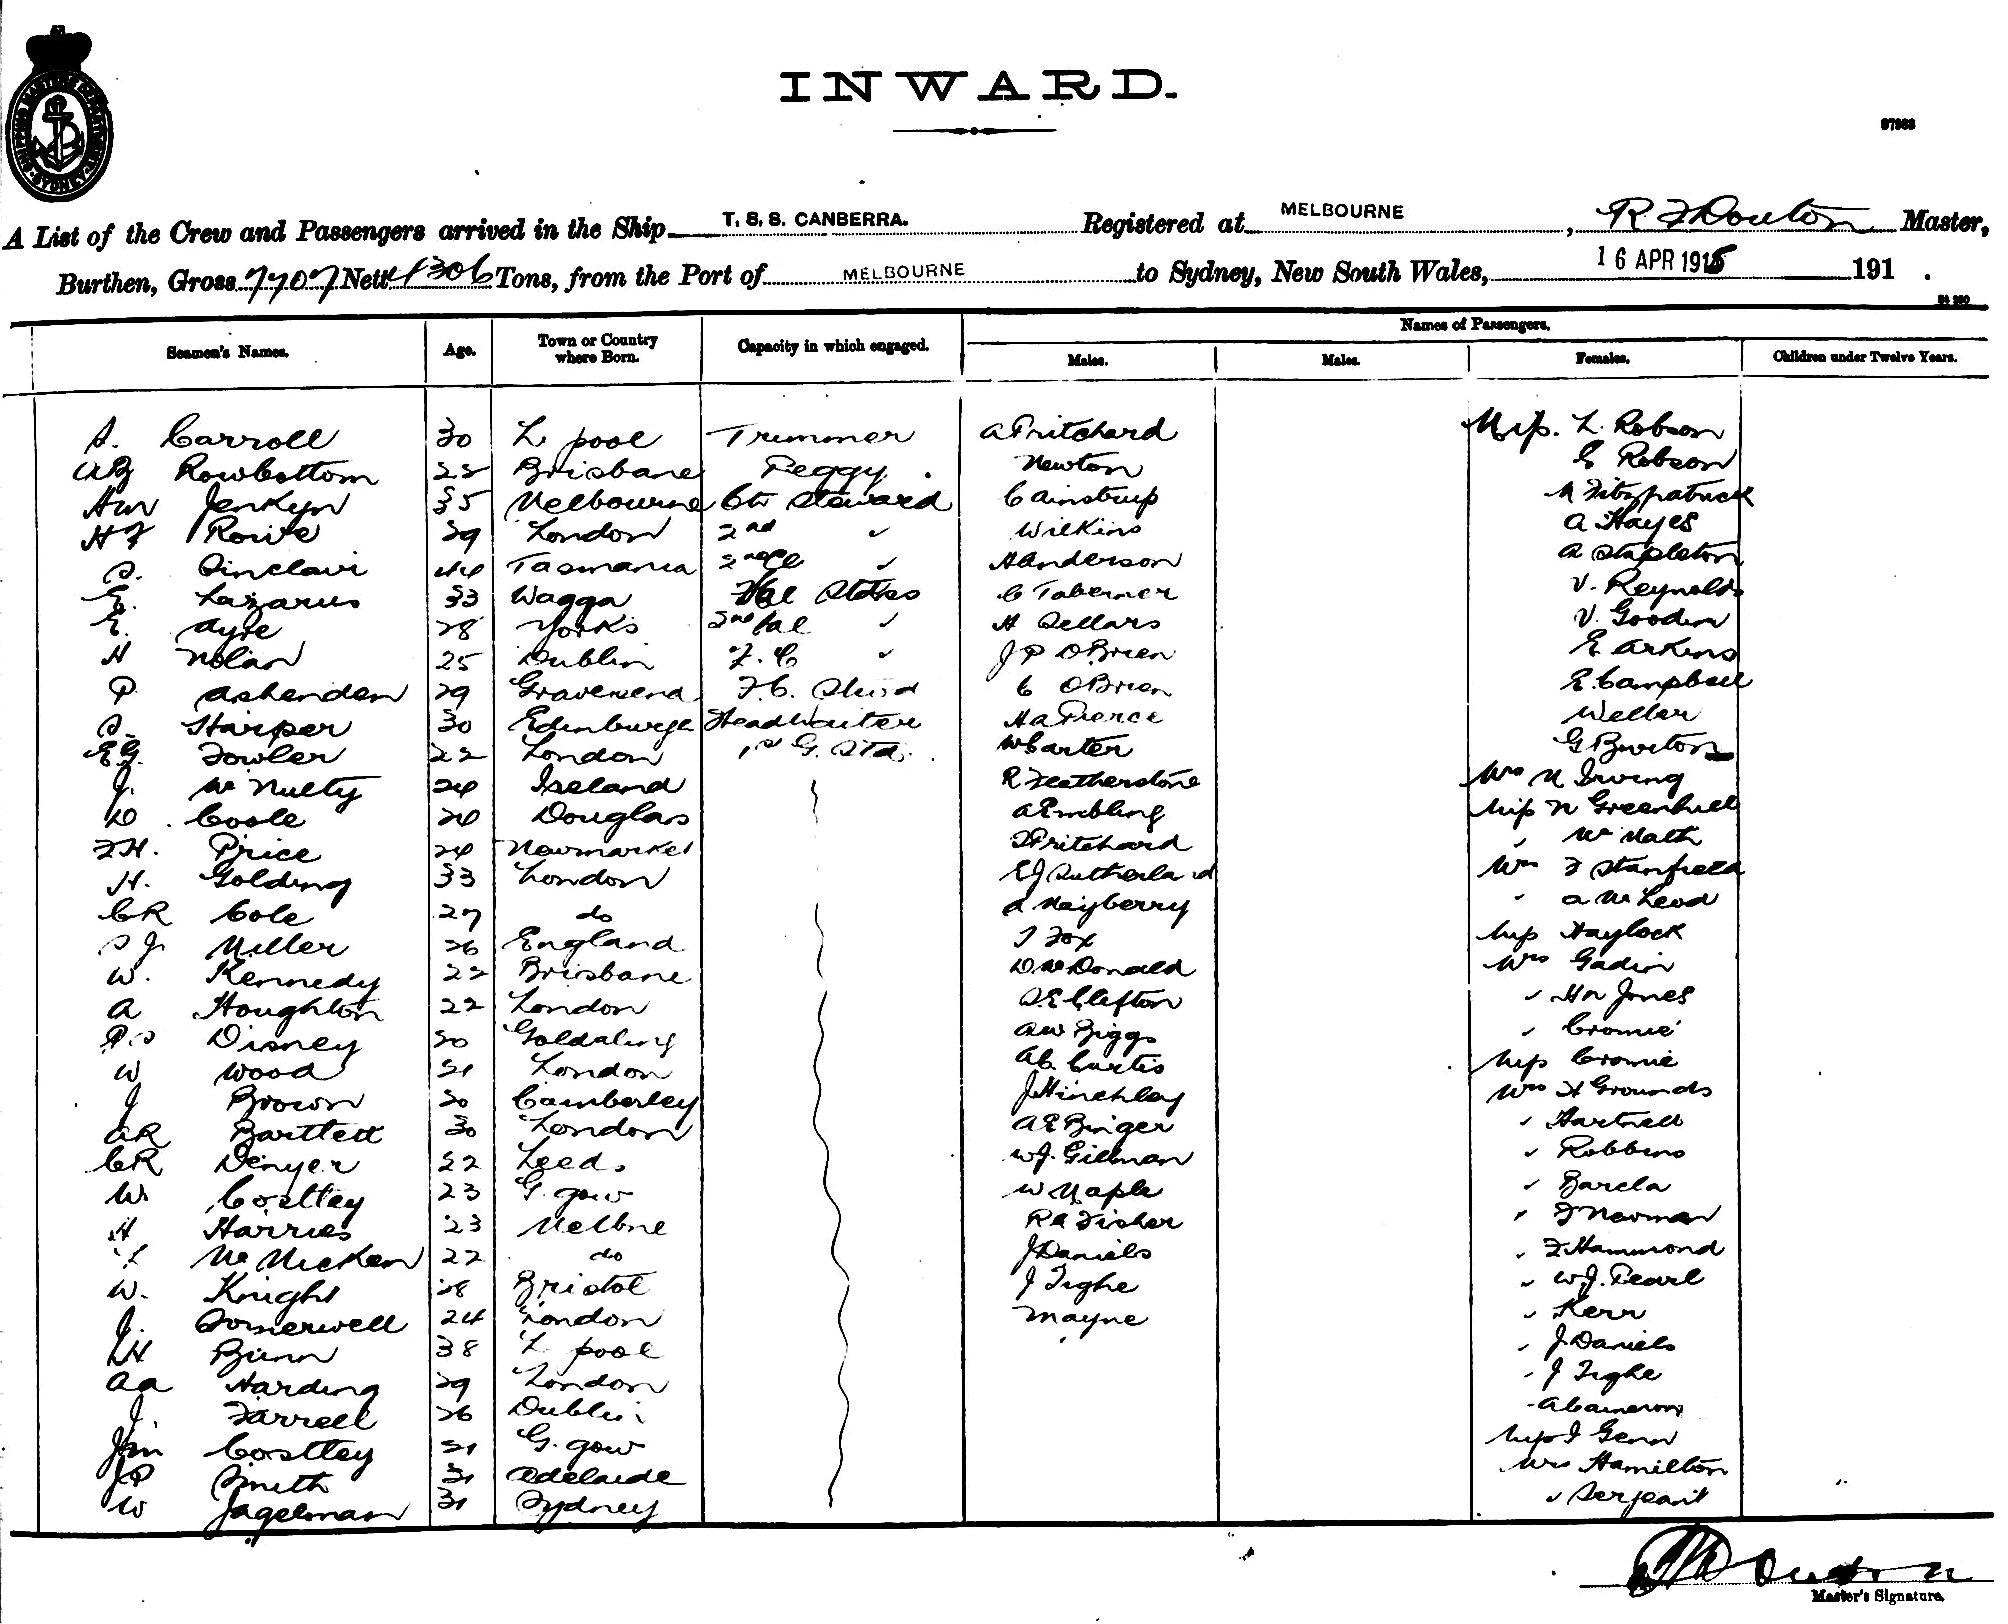 INWARD.
SHIPPING MASTERS DEPARTMENT SYDNEY
97963
A List of the Crew and Passengers arrived in the Ship T. S. S. CANBERRA. Registered at MELBOURNE, R Douton Master,
Burthen, Gross 7707 Nett 4306 Tons, from the Port of MELBOURNE to Sydney, New South Wales, 16 APR 191 191 .
Names of Passengers.
Seamen's Names. Age. Town or Country where Born. Capacity in which engaged. Males. Males. Females. Children under Twelve Years.
S. Carroll 30 L pool Trimmer A Pritchard Miss. L. Robson
Rowbottom 22 Brisbane Peggy. Newton E Robson
Jenkyn 35 Melbourne Ch Steward C Ainstrup Fitzpatrick
H F Rowe 29 London 2nd " Wilkins A Hayes
S. Sinclair 44 Tasmania " H Anderson A Stapleton
E. Lazarus 33 Wagga C Taberner V. Reynolds
E. Ayre 28 Yorks " H Sellars V. Gooden
H Nolan 25 Dublin F. C " J P O'Brien E Arkins
P. Ashenden 29 Gravesend F. C. C O'Brien E. Campbell
S. Harper 30 Edinburgh Headwaiter H A Pierce Weller
E G. Fowler 22 London 1st G. Std. W Carter G Burton
J. McNulty 24 Ireland R Featherstone Mrs N Irving
D. Coole 24 Douglas A Embling Miss N Greenhill
F H. Price 24 Newmarket F Pritchard " McMath
H. Golding 33 London E J Sutherland Mrs F Stanfield
C R Cole 27 do A Mayberry " A McLeod
S J. Miller 26 England T Fox Miss Haylock
W. Kennedy 22 Brisbane D McDonald Mrs Gadin
A Houghton 22 London S. E Clefton " Jones
Disney 20 Godalming A W Biggs " Cromie
W Wood 21 London A C. Curtis Miss Cromie
J Brown 20 Camberley J Hinchley Mrs H Grounds
A R Bartlett 30 London A E Binger " Hartnell
C R Denyer 22 Leeds W J. Gillman " Robbins
W Costley 23 G. gow W Maple " Barcla
H Harries 23 Melbne R A Fisher " F Norman
McMicken 22 do J Daniels " F Hammond
W. Knight 28 Bristol J Tighe " W J. Pearl
J. Somerwell 24 London Mayne " Kerr
L H Bunn 38 L pool " J Daniels
A A Harding 29 London " J Tighe
J. Farrell 26 Dublin " A Cameron
Jas Costley 21 G. gow Miss J Genn
J P Smith 31 Adelaide Mrs Hamilton
W Jagelman 31 Sydney " Serjeant
Master's Signature.